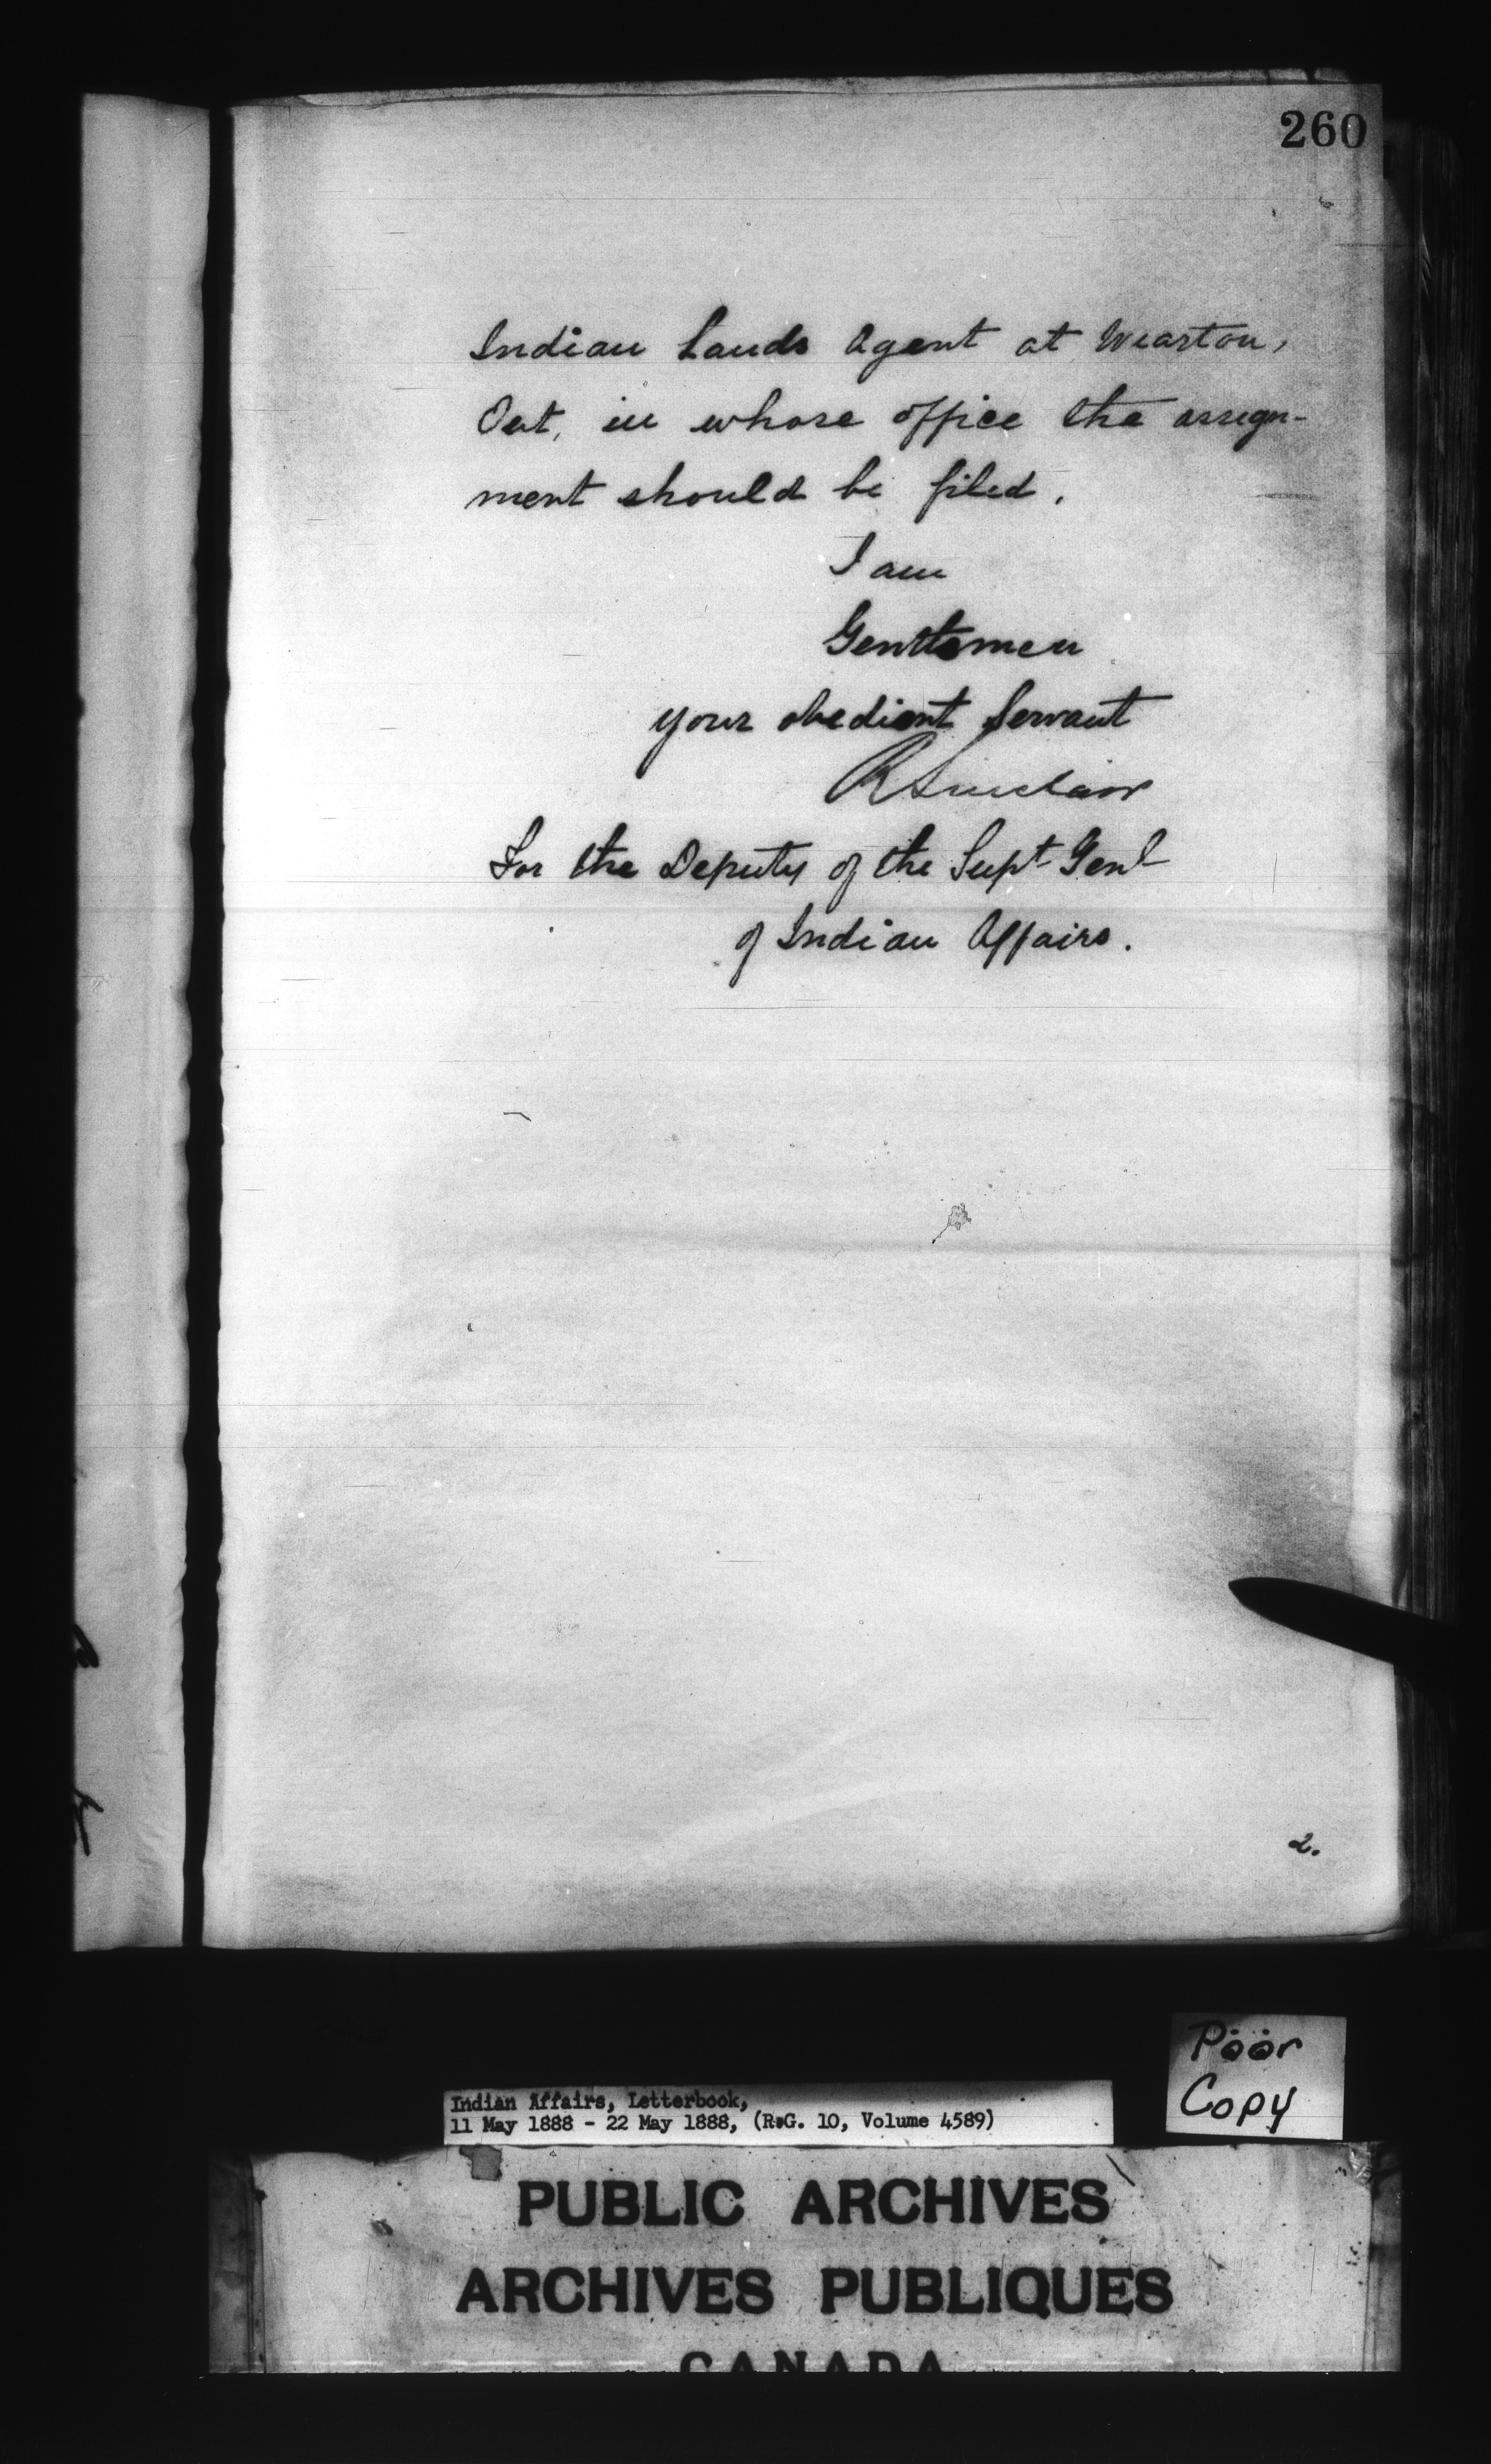 260
Indian Lands Agent at Wiarton,
Ont, in whose office the assign-
ment should be filed.
I am
Gentlemen
your obedient Servant
R Sinclair
For the Deputy of the Supt Genl
of Indian Affairs.
2.
Poor
Copy
Indian Affairs, Letterbook,
11 May 1888 - 22 May 1888, (R.G. 10, Volume 4589)
PUBLIC ARCHIVES
ARCHIVES PUBLIQUES
CANADA